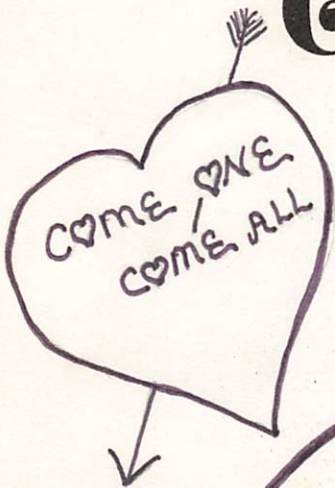 COME ONE
COME ALL